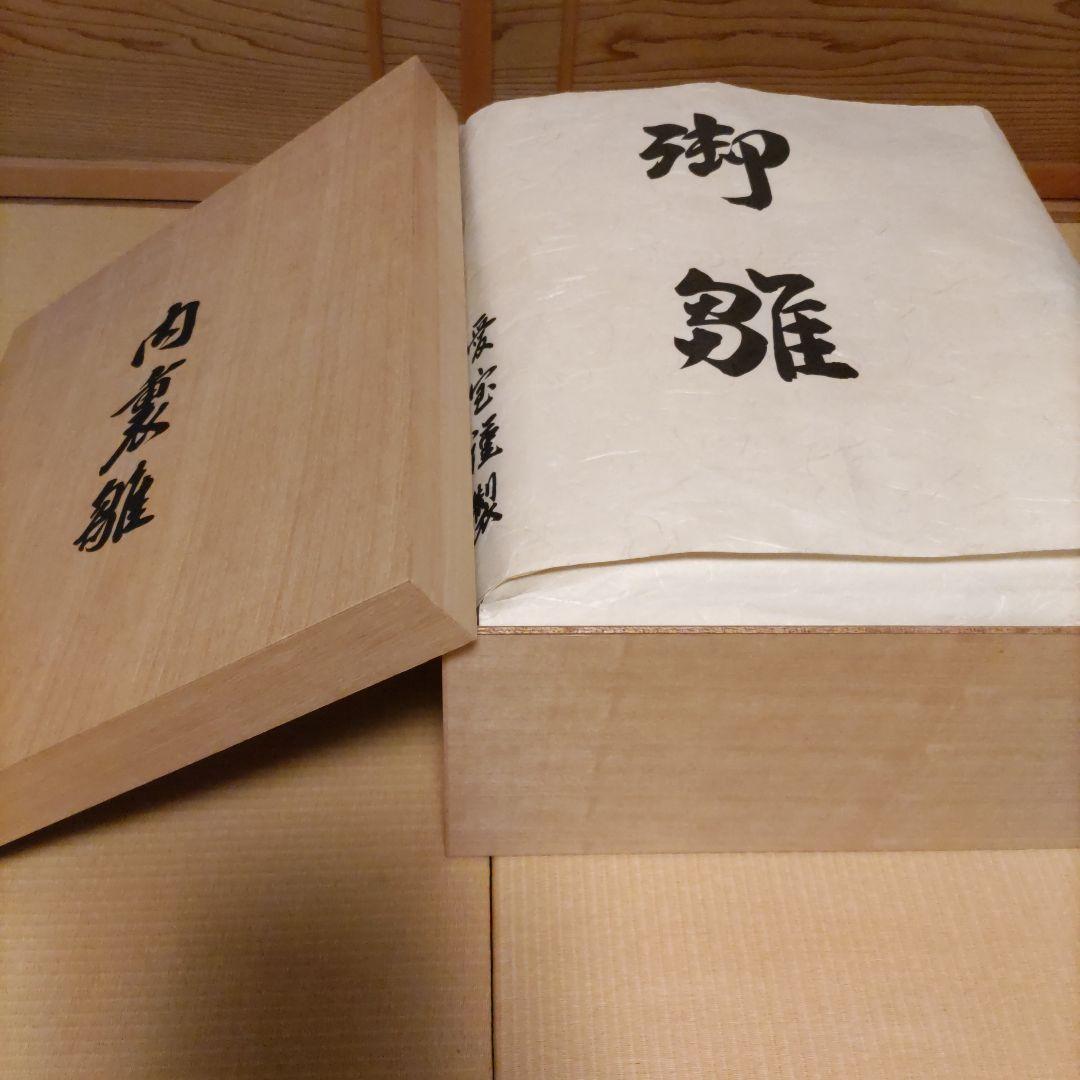 内裏雛
御雛
愛宝謹製